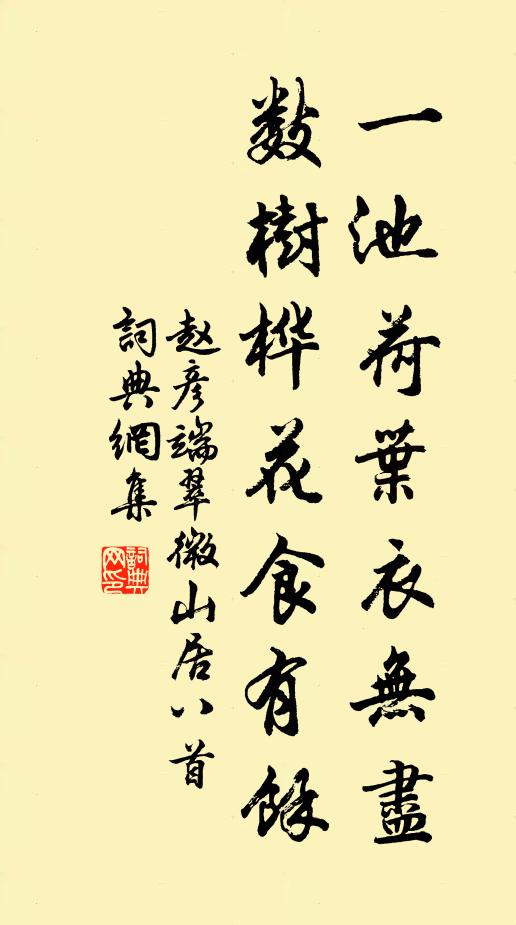 一池荷葉衣無盡
數樹桦花食有餘
赵彦端翠微山居八首
詞典網集
詞典網印